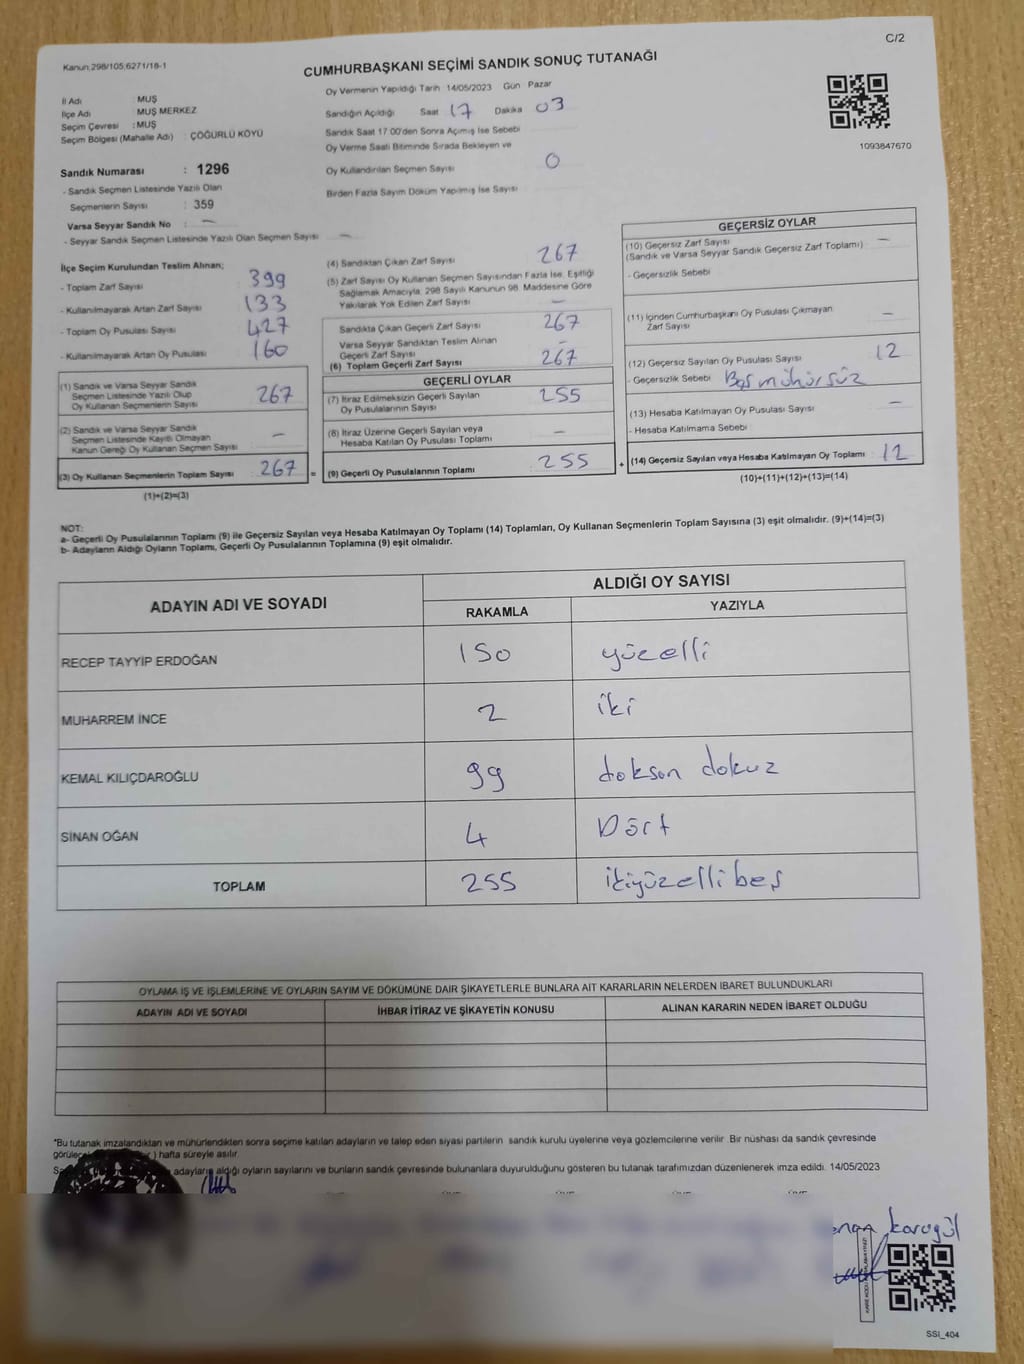 C/2
Kanun:298/105;6271/18-1
CUMHURBAŞKANI SEÇİMİ SANDIK SONUÇ TUTANAĞI
İl Adı : MUŞ
İlçe Adı : MUŞ MERKEZ
Seçim Çevresi : MUŞ
Seçim Bölgesi (Mahalle Adı) : ÇÖĞÜRLÜ KÖYÜ
Sandık Numarası : 1296
- Sandık Seçmen Listesinde Yazılı Olan
Seçmenlerin Sayısı : 359
Varsa Seyyar Sandık No : —
- Seyyar Sandık Seçmen Listesinde Yazılı Olan Seçmen Sayısı —
Oy Vermenin Yapıldığı Tarih 14/05/2023 Gün Pazar
Sandığın Açıldığı Saat 17 Dakika 03
Sandık Saat 17:00'den Sonra Açılmış İse Sebebi
Oy Verme Saati Bitiminde Sırada Bekleyen ve
Oy Kullandırılan Seçmen Sayısı 0
Birden Fazla Sayım Döküm Yapılmış İse Sayısı
1093847670
İlçe Seçim Kurulundan Teslim Alınan;
- Toplam Zarf Sayısı 399
- Kullanılmayarak Artan Zarf Sayısı 133
- Toplam Oy Pusulası Sayısı 427
- Kullanılmayarak Artan Oy Pusulası 160
(1) Sandık ve Varsa Seyyar Sandık
Seçmen Listesinde Yazılı Olup
Oy Kullanan Seçmenlerin Sayısı 267
(2) Sandık ve Varsa Seyyar Sandık
Seçmen Listesinde Kayıtlı Olmayan
Kanun Gereği Oy Kullanan Seçmen Sayısı —
(3) Oy Kullanan Seçmenlerin Toplam Sayısı 267 =
(1)+(2)=(3)
(4) Sandıktan Çıkan Zarf Sayısı 267
(5) Zarf Sayısı Oy Kullanan Seçmen Sayısından Fazla İse, Eşitliği
Sağlamak Amacıyla, 298 Sayılı Kanunun 98. Maddesine Göre
Yakılarak Yok Edilen Zarf Sayısı —
Sandıkta Çıkan Geçerli Zarf Sayısı 267
Varsa Seyyar Sandıktan Teslim Alınan
Geçerli Zarf Sayısı —
(6) Toplam Geçerli Zarf Sayısı 267
GEÇERLİ OYLAR
(7) İtiraz Edilmeksizin Geçerli Sayılan
Oy Pusulalarının Sayısı 255
(8) İtiraz Üzerine Geçerli Sayılan veya
Hesaba Katılan Oy Pusulası Toplamı —
(9) Geçerli Oy Pusulalarının Toplamı 255 +
GEÇERSİZ OYLAR
(10) Geçersiz Zarf Sayısı —
(Sandık ve Varsa Seyyar Sandık Geçersiz Zarf Toplamı)
- Geçersizlik Sebebi
(11) İçinden Cumhurbaşkanı Oy Pusulası Çıkmayan
Zarf Sayısı —
(12) Geçersiz Sayılan Oy Pusulası Sayısı 12
- Geçersizlik Sebebi Boş mühürsüz
(13) Hesaba Katılmayan Oy Pusulası Sayısı —
- Hesaba Katılmama Sebebi
(14) Geçersiz Sayılan veya Hesaba Katılmayan Oy Toplamı 12
(10)+(11)+(12)+(13)=(14)
NOT:
a- Geçerli Oy Pusulalarının Toplamı (9) ile Geçersiz Sayılan veya Hesaba Katılmayan Oy Toplamı (14) Toplamları, Oy Kullanan Seçmenlerin Toplam Sayısına (3) eşit olmalıdır. (9)+(14)=(3)
b- Adayların Aldığı Oyların Toplamı, Geçerli Oy Pusulalarının Toplamına (9) eşit olmalıdır.
ADAYIN ADI VE SOYADI
ALDIĞI OY SAYISI
RAKAMLA YAZIYLA
RECEP TAYYİP ERDOĞAN 150 yüzelli
MUHARREM İNCE 2 iki
KEMAL KILIÇDAROĞLU 99 doksan dokuz
SİNAN OĞAN 4 Dört
TOPLAM 255 ikiyüzellibeş
OYLAMA İŞ VE İŞLEMLERİNE VE OYLARIN SAYIM VE DÖKÜMÜNE DAİR ŞİKAYETLERLE BUNLARA AİT KARARLARIN NELERDEN İBARET BULUNDUKLARI
ADAYIN ADI VE SOYADI İHBAR İTİRAZ VE ŞİKAYETİN KONUSU ALINAN KARARIN NEDEN İBARET OLDUĞU
*Bu tutanak imzalandıktan ve mühürlendikten sonra seçime katılan adayların ve talep eden siyasi partilerin sandık kurulu üyelerine veya gözlemcilerine verilir. Bir nüshası da sandık çevresinde
) hafta süreyle asılır.
adayların aldığı oyların sayılarını ve bunların sandık çevresinde bulunanlara duyurulduğunu gösteren bu tutanak tarafımızdan düzenlenerek imza edildi. 14/05/2023
karagül
SSI_404